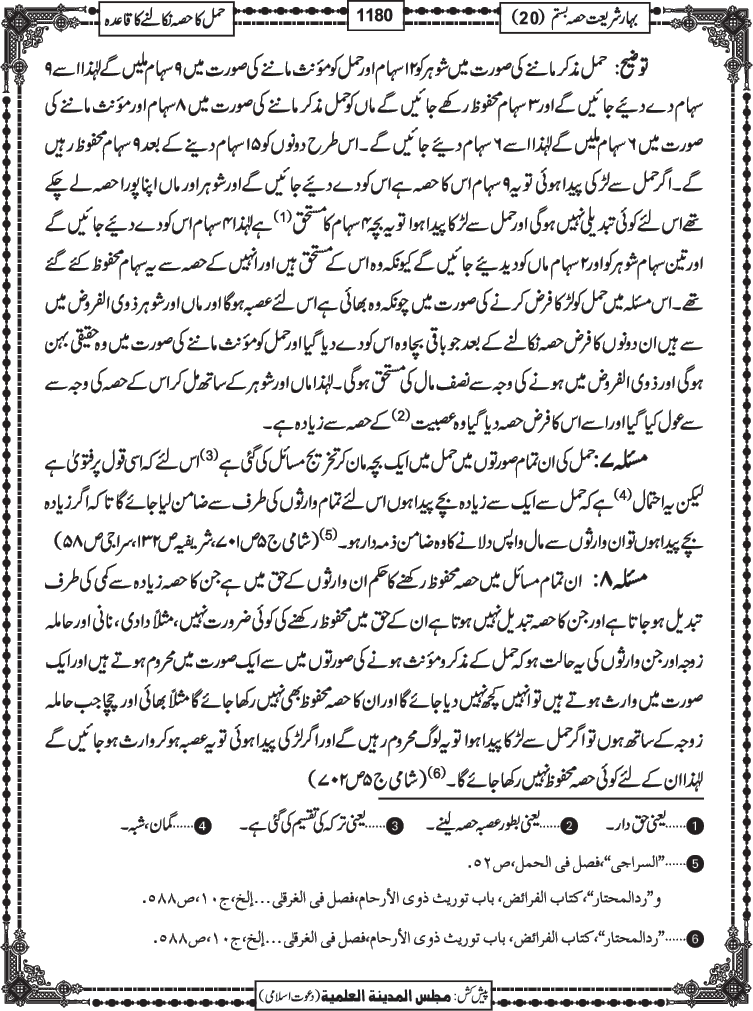 بہار شریعت حصہ بستم (20)
1180
حمل کا حصہ نکالنے کا قاعدہ
توضیح: حمل مذکر ماننے کی صورت میں شوہر کو ۱۲ سہام اور حمل کو مؤنث ماننے کی صورت میں ۹ سہام ملیں گے لہٰذا اسے ۹
سہام دے دیئے جائیں گے اور ۳ سہام محفوظ رکھے جائیں گے ماں کو حمل مذکر ماننے کی صورت میں ۸ سہام اور مؤنث ماننے کی
صورت میں ۶ سہام ملیں گے لہٰذا اسے ۶ سہام دیئے جائیں گے۔ اس طرح دونوں کو ۱۵ سہام دینے کے بعد ۹ سہام محفوظ رہیں
گے۔ اگر حمل سے لڑکی پیدا ہوئی تو یہ ۹ سہام اس کا حصہ ہے اس کو دے دیئے جائیں گے اور شوہر اور ماں اپنا پورا حصہ لے چکے
تھے اس لئے کوئی تبدیلی نہیں ہوگی اور حمل سے لڑکا پیدا ہوا تو یہ بچہ ۴ سہام کا مستحق (1) ہے لہٰذا ۴ سہام اس کو دے دیئے جائیں گے
اور تین سہام شوہر کو اور ۲ سہام ماں کو دیدیئے جائیں گے کیونکہ وہ اس کے مستحق ہیں اور انہیں کے حصہ سے یہ سہام محفوظ کئے گئے
تھے۔ اس مسئلہ میں حمل کو لڑکا فرض کرنے کی صورت میں چونکہ وہ بھائی ہے اس لئے عصبہ ہوگا اور ماں اور شوہر ذوی الفروض میں
سے ہیں ان دونوں کا فرض حصہ نکالنے کے بعد جو باقی بچا وہ اس کو دے دیا گیا اور حمل کو مؤنث ماننے کی صورت میں وہ حقیقی بہن
ہوگی اور ذوی الفروض میں ہونے کی وجہ سے نصف مال کی مستحق ہوگی۔ لہٰذا ماں اور شوہر کے ساتھ مل کر اس کے حصہ کی وجہ سے
سے عول کیا گیا اور اسے اس کا فرض حصہ دیا گیا وہ عصبیت (2) کے حصہ سے زیادہ ہے۔
مسئلہ ۷: حمل کی ان تمام صورتوں میں حمل میں ایک بچہ مان کر تخریج مسائل کی گئی ہے (3) اس لئے کہ اسی قول پر فتویٰ ہے
لیکن یہ احتمال (4) ہے کہ حمل سے ایک سے زیادہ بچے پیدا ہوں اس لئے تمام وارثوں کی طرف سے ضامن لیا جائے گا تا کہ اگر زیادہ
بچے پیدا ہوں تو ان وارثوں سے مال واپس دلانے کا وہ ضامن ذمہ دار ہو۔ (5) (شامی ج۵ص۷۰۱، شریفیہ ص۱۳۲، سراجی ص۵۸)
مسئلہ ۸: ان تمام مسائل میں حصہ محفوظ رکھنے کا حکم ان وارثوں کے حق میں ہے جن کا حصہ زیادہ سے کمی کی طرف
تبدیل ہو جاتا ہے اور جن کا حصہ تبدیل نہیں ہوتا ہے ان کے حق میں محفوظ رکھنے کی کوئی ضرورت نہیں، مثلاً دادی، نانی اور حاملہ
زوجہ اور جن وارثوں کی یہ حالت ہو کہ حمل کے مذکر و مؤنث ہونے کی صورتوں میں سے ایک صورت میں محروم ہوتے ہیں اور ایک
صورت میں وارث ہوتے ہیں تو انہیں کچھ نہیں دیا جائے گا اور ان کا حصہ محفوظ بھی نہیں رکھا جائے گا مثلاً بھائی اور چچا جب حاملہ
زوجہ کے ساتھ ہوں تو اگر حمل سے لڑکا پیدا ہوا تو یہ لوگ محروم رہیں گے اور اگر لڑکی پیدا ہوئی تو یہ عصبہ ہو کر وارث ہو جائیں گے
لہٰذا ان کے لئے کوئی حصہ محفوظ نہیں رکھا جائے گا۔ (6) (شامی ج۵ص۷۰۲)
1 ......یعنی حق دار۔ 2 ......یعنی بطور عصبہ حصہ لینے۔ 3 ......یعنی ترکہ کی تقسیم کی گئی ہے۔ 4 ......گمان، شبہ۔
5 ......"السراجي"، فصل فی الحمل، ص۵۲.
و"ردالمحتار"، کتاب الفرائض، باب توریث ذوی الأرحام، فصل فی الغرقی...إلخ، ج۱۰، ص۵۸۸.
6 ......"ردالمحتار"، کتاب الفرائض، باب توریث ذوی الأرحام، فصل فی الغرقی...إلخ، ج۱۰، ص۵۸۸.
پیش کش: مجلس المدينة العلمية (دعوت اسلامی)